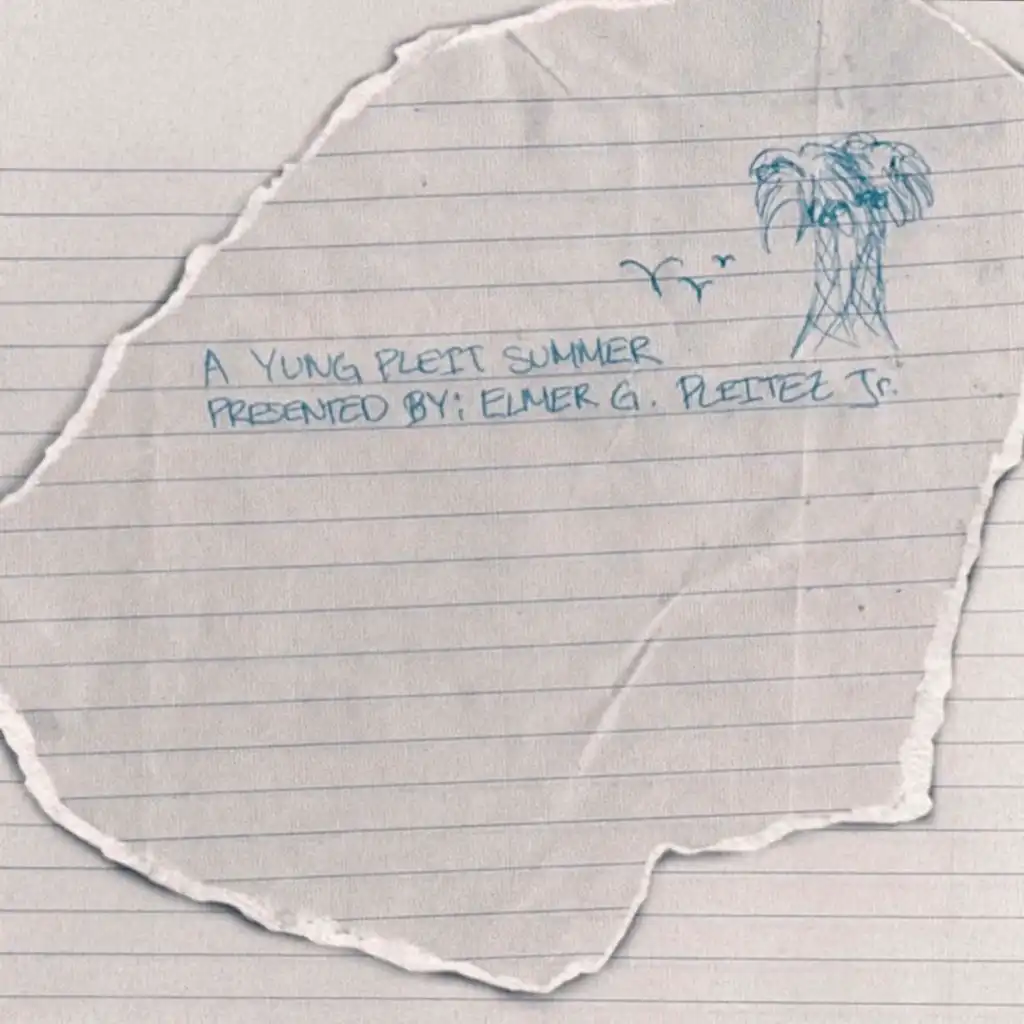 A YUNG PLEIT SUMMER
PRESENTED BY: ELMER G. PLEITEZ Jr.